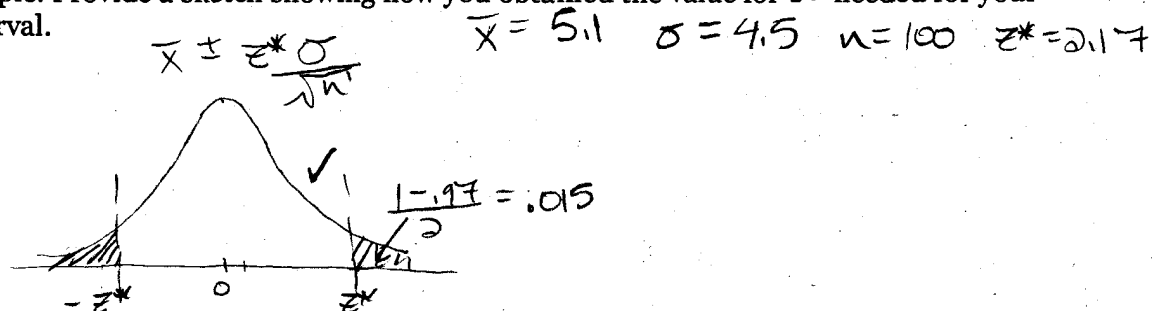 Provide a sketch showing how you obtained the value for z* needed for your
rval.
x̄ ± z* σ/√n x̄ = 5.1 σ = 4.5 n = 100 z* = 2.17
(1-.97)/2 = .015
-z* 0 z*